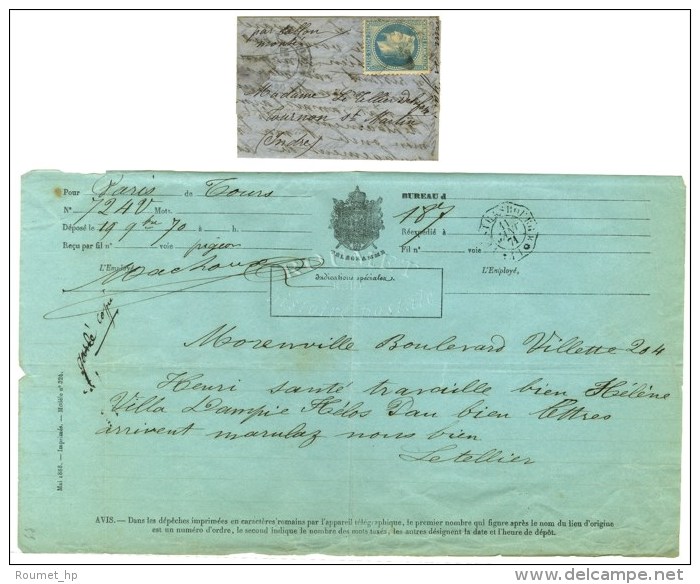 par ballon
monté
Madame Le Tellier
Tournon St Martin
(Indre)
Pour Paris de Tours
BUREAU d
N° 724V Mots. 187
Déposé le 19 9bre 70 à h.
Réexpédié à
Reçu par fil n° voie pigeon
Fil n° voie
L'Employé,
TÉLÉGRAMME
L'Employé,
Indications spéciales.
gardé copie
Morenville Boulevard Villette 204
Henri santé travaille bien Hélène
Villa Dampie Hélos Pau bien lettres
arrivent marulaz nous bien
Letellier
Mai 1868. — Imprimés. — Modèle n° 394.
AVIS. — Dans les dépêches imprimées en caractères romains par l'appareil télégraphique, le premier nombre qui figure après le nom du lieu d'origine
est un numéro d'ordre, le second indique le nombre des mots taxés, les autres désignent la date et l'heure de dépôt.
Roumet_hp
delcampe.net